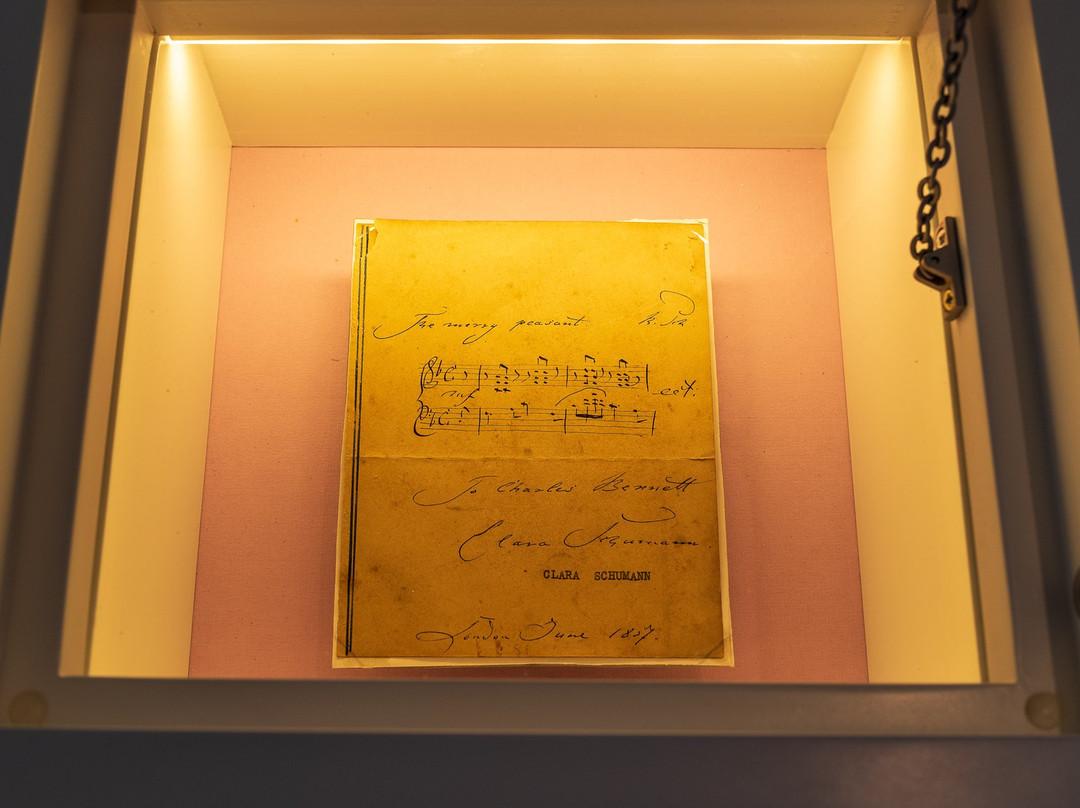 The merry peasant R. Sch
mf ect.
To Charles Bennett
Clara Schumann.
CLARA SCHUMANN
London June 1857.